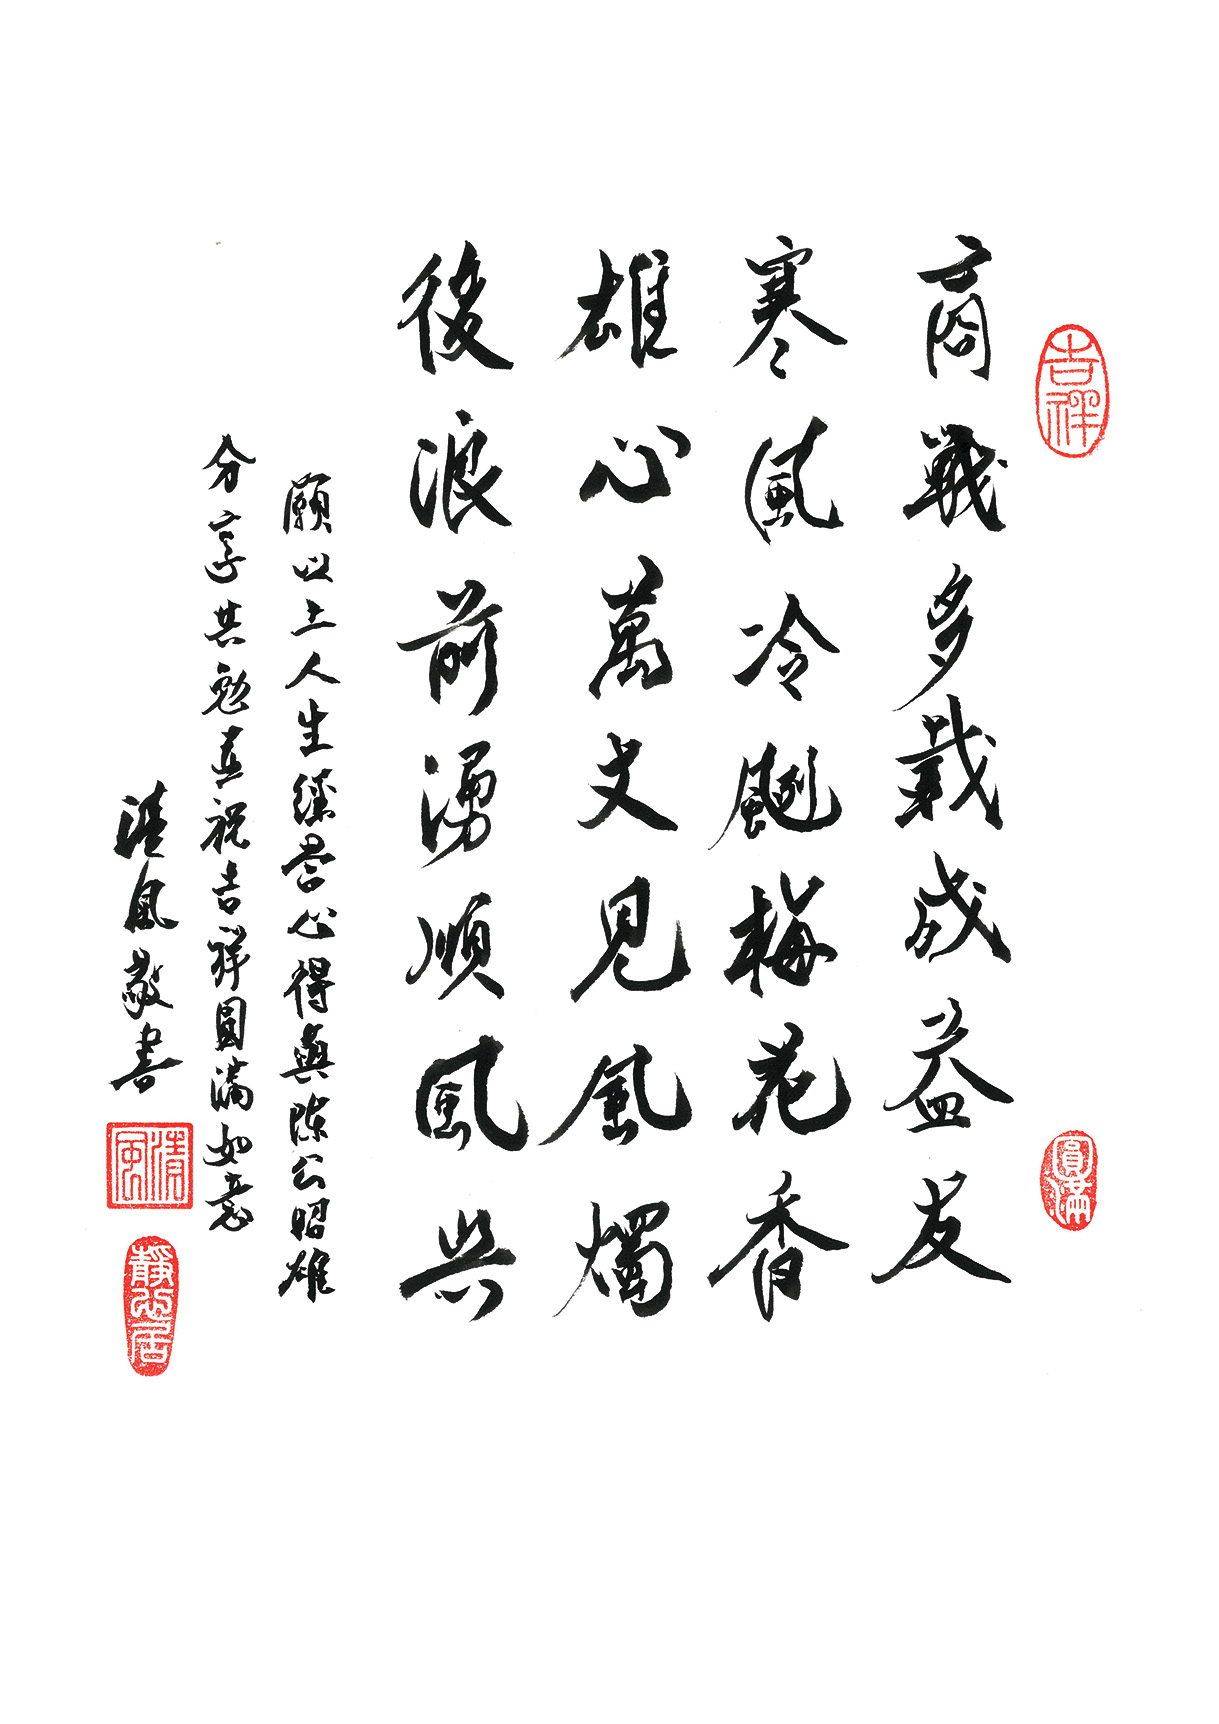 吉祥
圓滿
商戰多載成益友
寒風冷颼梅花香
雄心萬丈見風燭
後浪前湧順風興
願以上人生經營心得與陳公昭雄
分享共勉並祝吉祥圓滿如意
清風敬書
清風
靜心居